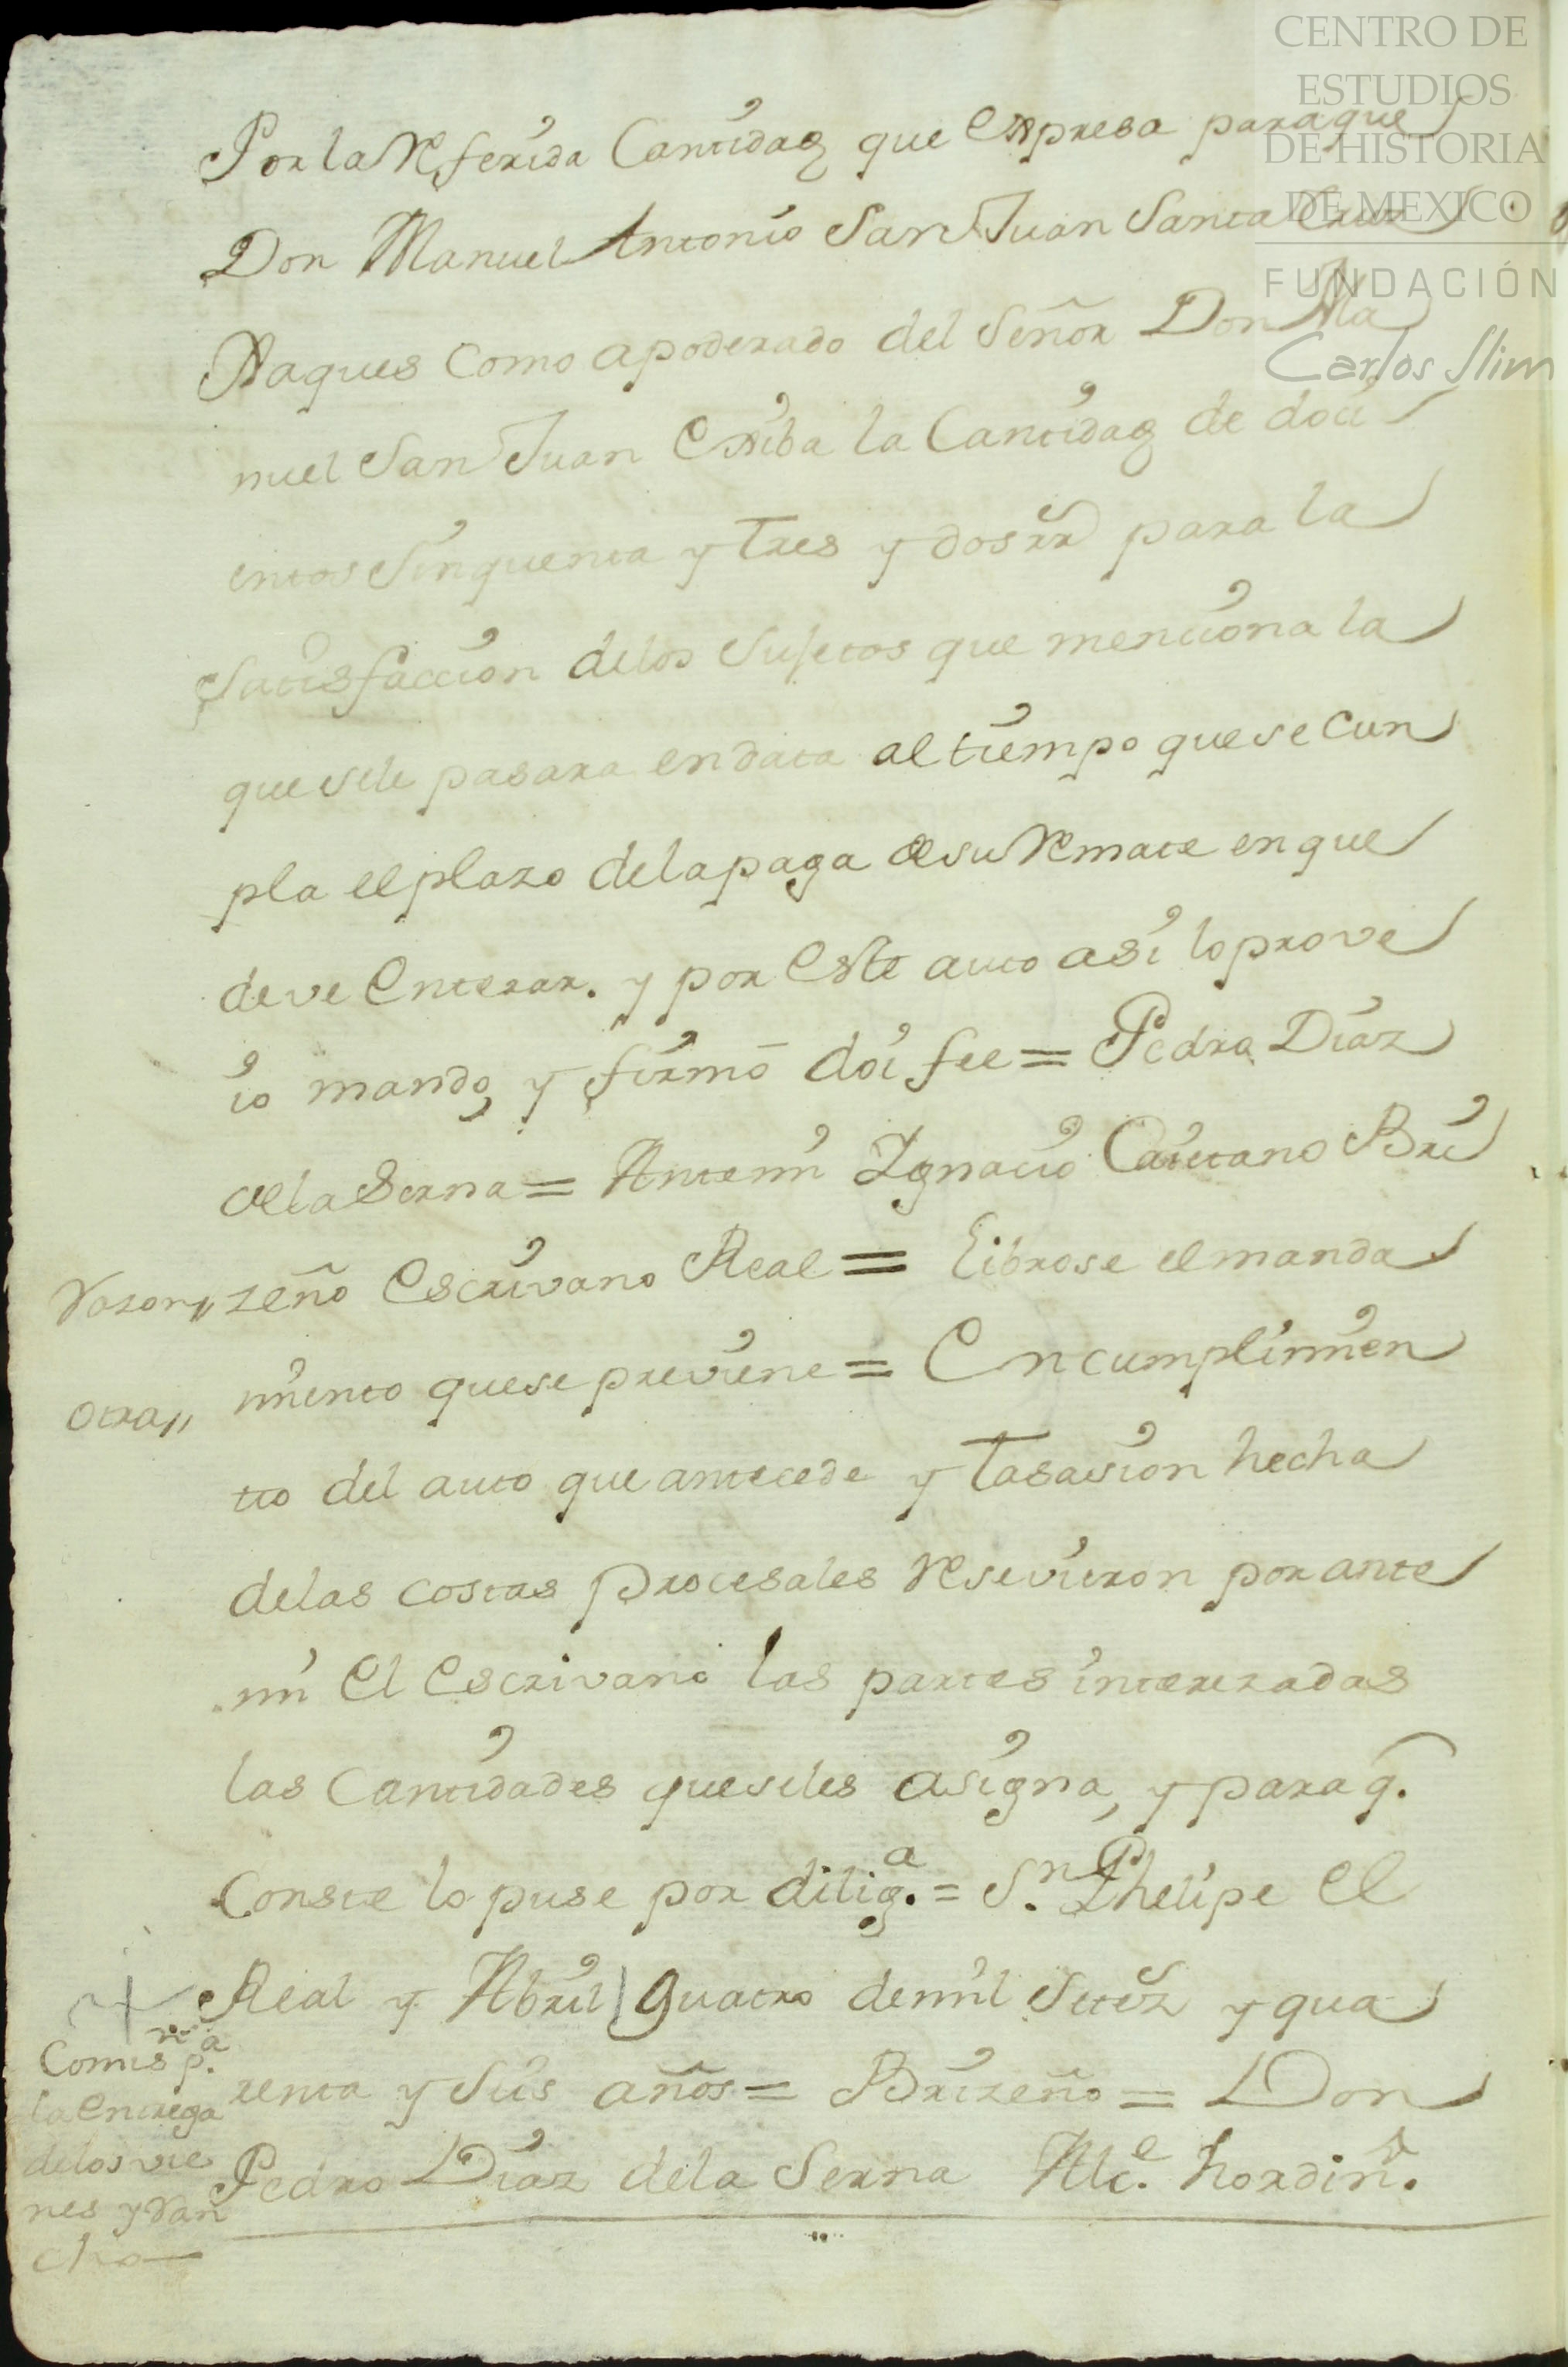 CENTRO DE
ESTUDIOS
DE HISTORIA
DE MEXICO
FUNDACIÓN
Carlos Slim
Por la Referida Cantidad que Expresa para que
Don Manuel Antonio San Juan Santa Cruz
Xaques como apoderado del Señor Don Ma
nuel San Juan Exiba la Cantidad de doci
entos Sinquenta y tres y dos rr para la
Satisfaccion de los Sujetos que menciona la
que se le pasara en data al tiempo que se cun
pla el plazo de la paga de su Remate en que
deve Enterar. y por Este auto asi lo prove
io mando, y firmó doi fee = Pedro Diaz
de la Serna = Antemi Ignacio Caietano Bri
Razon,, zeño Escrivano Real = Librose el manda
miento que se previene = En cumplimien
otra,,
to del auto que antecede y tasasion hecha
de las costas procesales Resevieron por ante
mi El Escrivano las partes interezadas
las Cantidades que se les asigna, y para q.
Conste lo puse por dilig.a = S.n Phelipe El
Real y Abril quatro de mil Setez y qua
renta y Seis años = Brizeño = Don
Pedro Diaz de la Serna Alc.e hordin.o
Comis.n p.a
la entrega
de los vie
nes y Ran
cho